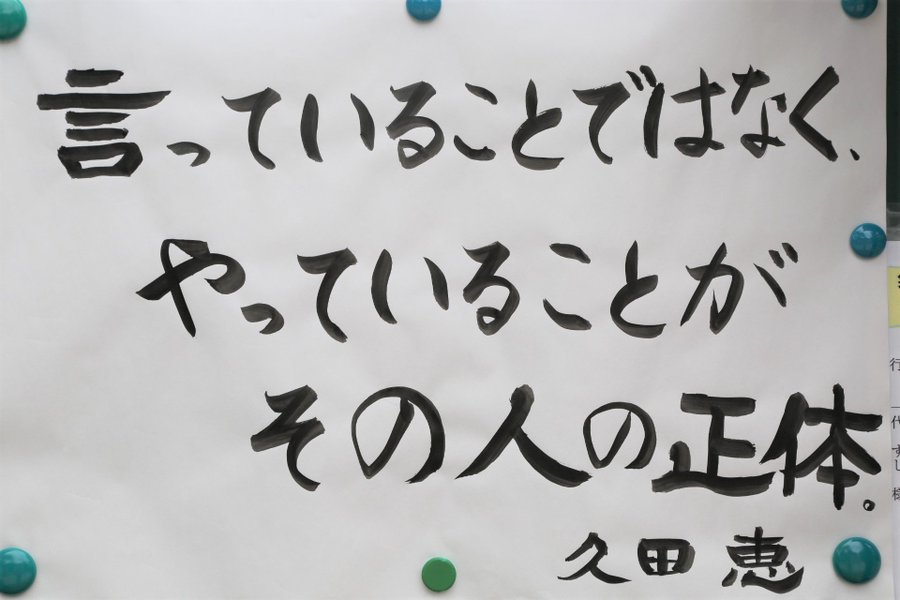 言っていることではなく、
やっていることが
その人の正体。
久田恵
行
代